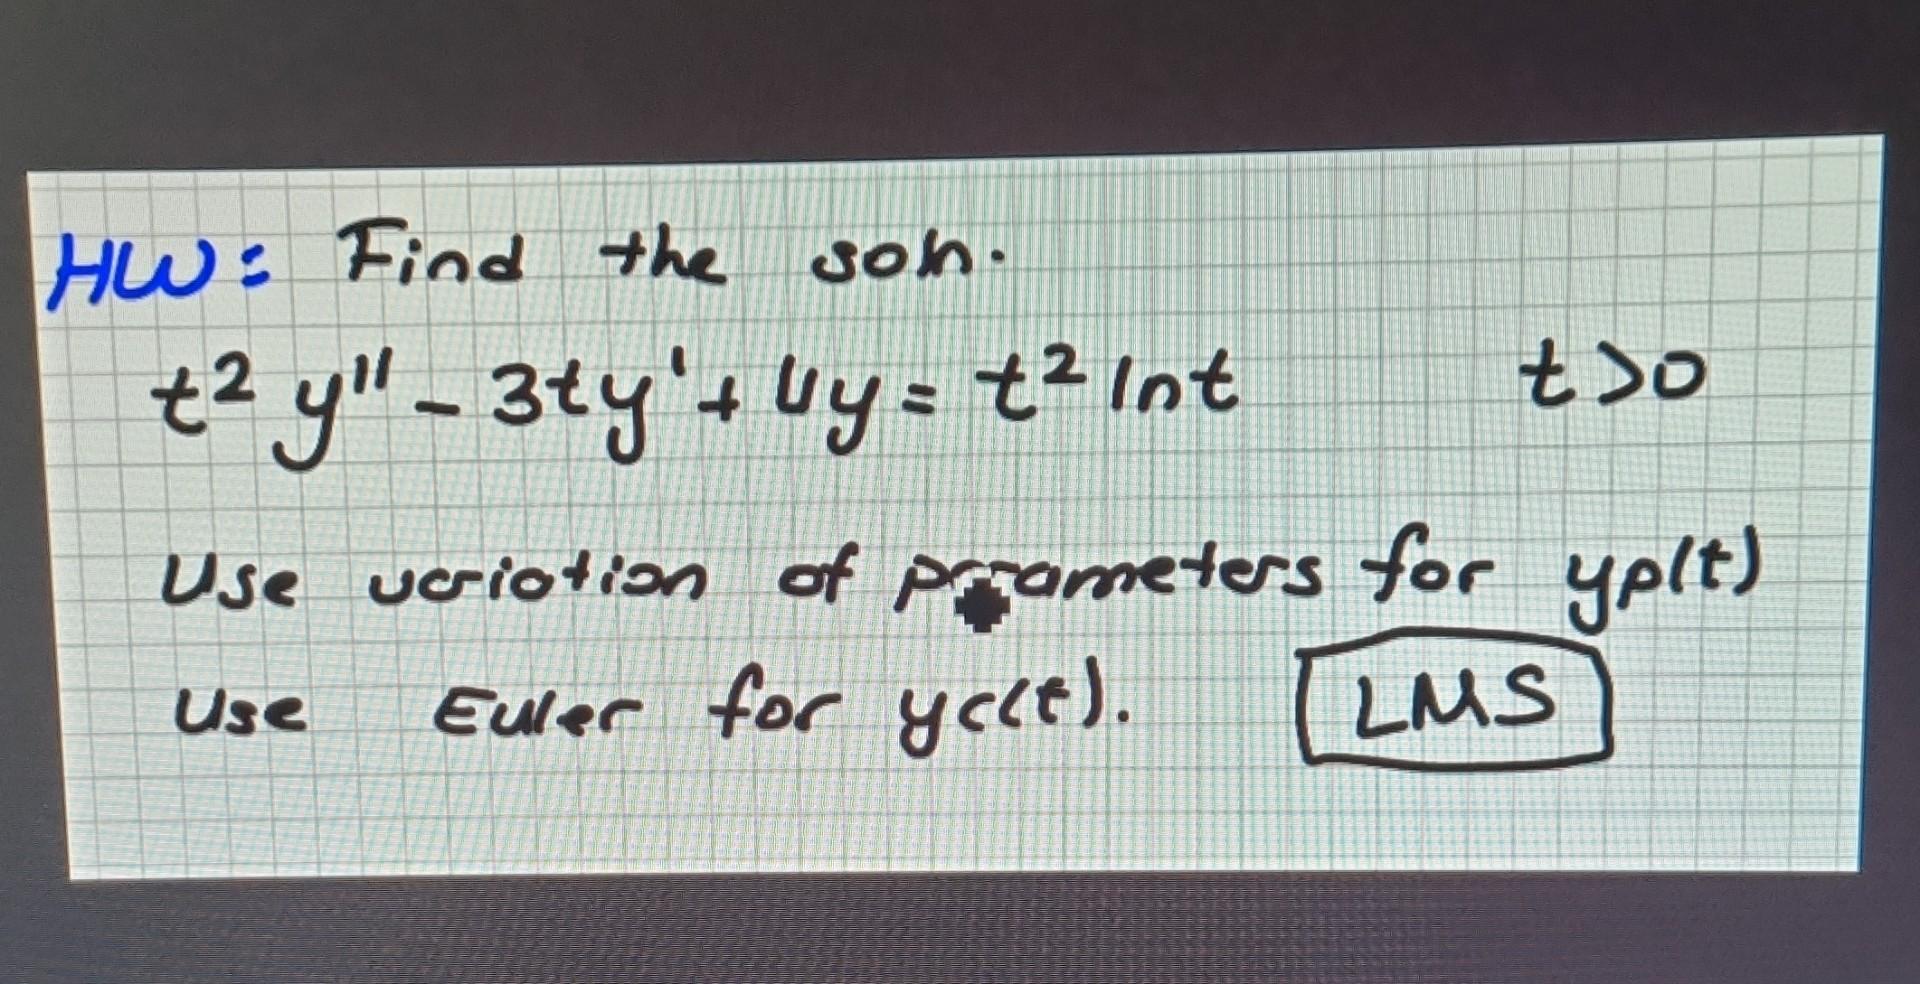 HW: Find the soln.
t² y'' - 3ty' + 4y = t² lnt t>0
Use variation of parameters for yp(t)
Use Euler for yc(t). LMS